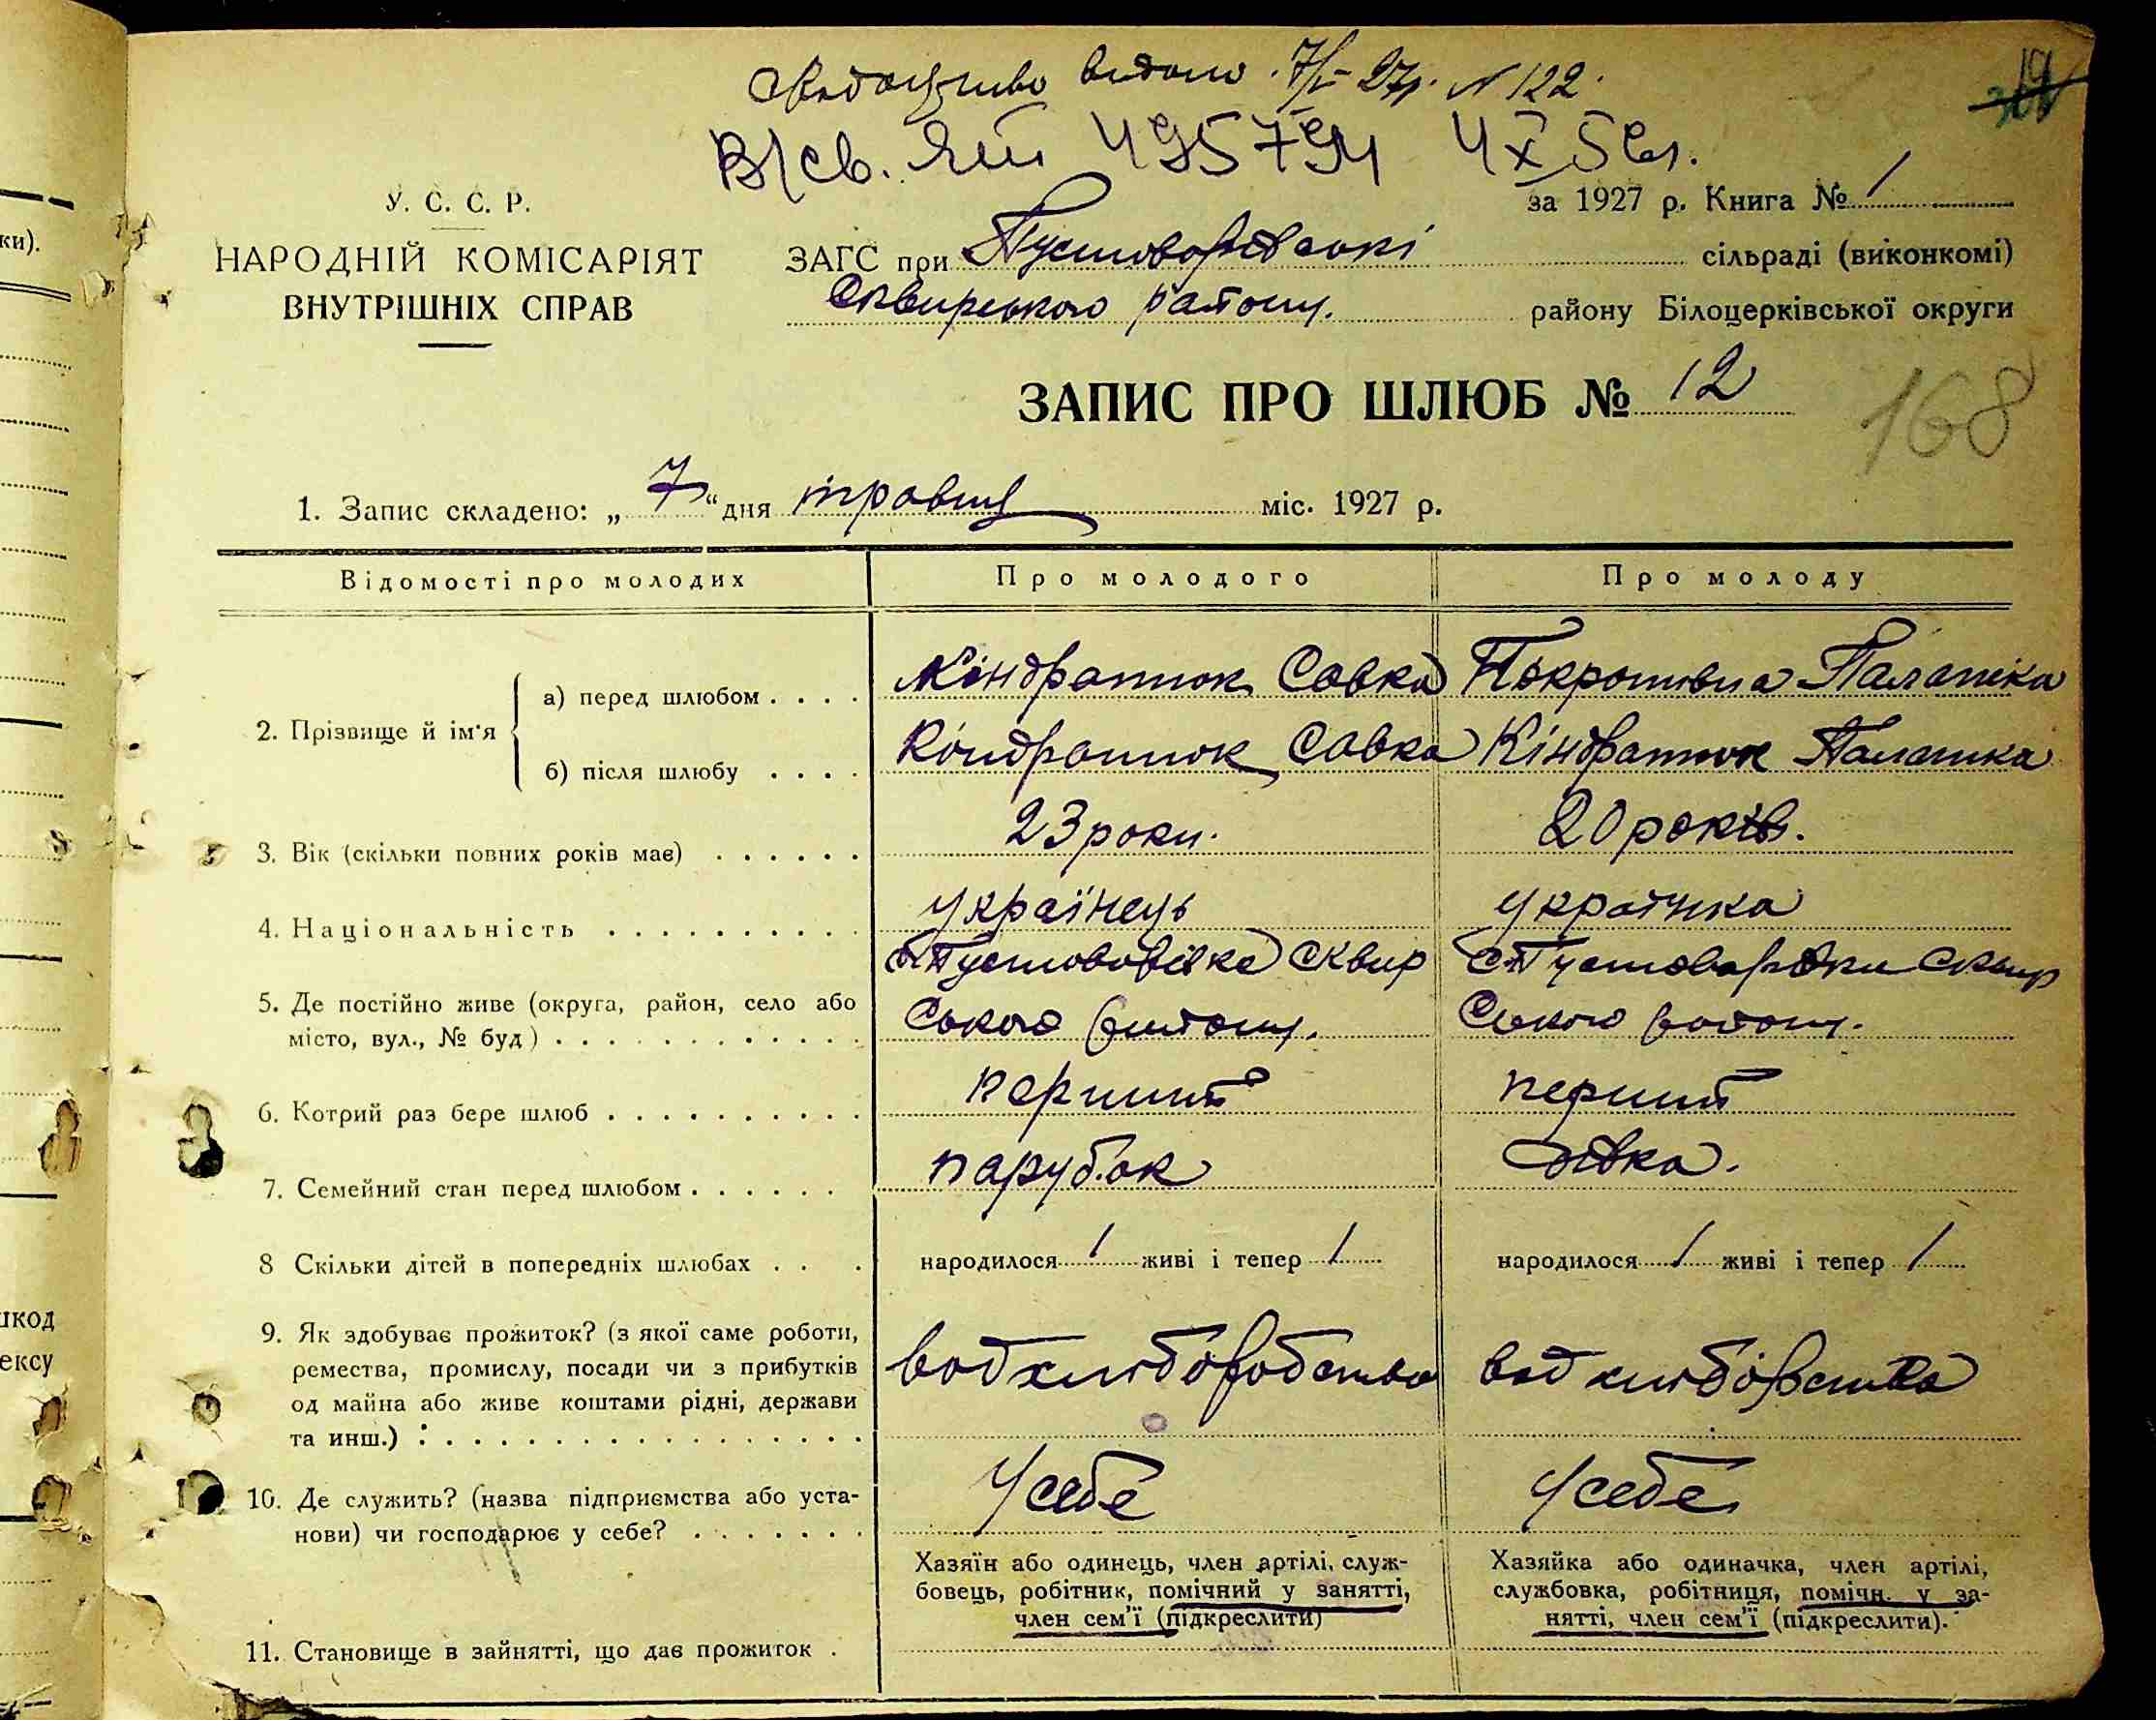 видано 7/V-27р. N 122.
В/св. 495794 4X5
за 1927 р. Книга № 1
У. С. С. Р.
НАРОДНІЙ КОМІСАРІЯТ
ВНУТРІШНІХ СПРАВ
ЗАГС при сільраді (виконкомі)
Сквирського району. району Білоцерківської округи
ЗАПИС ПРО ШЛЮБ № 12
168
1. Запис складено: „ 7 “ дня травня міс. 1927 р.
Відомості про молодих Про молодого Про молоду
2. Прізвище й ім'я
а) перед шлюбом . . . . Кіндратюк Савка
б) після шлюбу . . . . Кіндратюк Савка Кіндратюк
3. Вік (скільки повних років має) . . . . . . 23 роки. 20 років.
4. Національність . . . . . . . . . . українець українка
5. Де постійно живе (округа, район, село або Сквир Сквир
місто, вул., № буд) . . . . . . . . . . . . . ського району. ського району.
6. Котрий раз бере шлюб . . . . . . . . . . перший перший
7. Семейний стан перед шлюбом . . . . . . парубок дівка.
8 Скільки дітей в попередніх шлюбах . . . народилося / живі і тепер / народилося / живі і тепер /
9. Як здобуває прожиток? (з якої саме роботи,
ремества, промислу, посади чи з прибутків
од майна або живе коштами рідні, держави
та инш.) : . . . . . . . . . . . . . . . . .
10. Де служить? (назва підприємства або уста-
нови) чи господарює у себе? . . . . . . . У себе У себе
Хазяїн або одинець, член артілі, служ-
бовець, робітник, помічний у занятті,
член сем'ї (підкреслити)
Хазяйка або одиначка, член артілі,
службовка, робітниця, помічн. у за-
нятті, член сем'ї (підкреслити).
11. Становище в зайнятті, що дає прожиток .